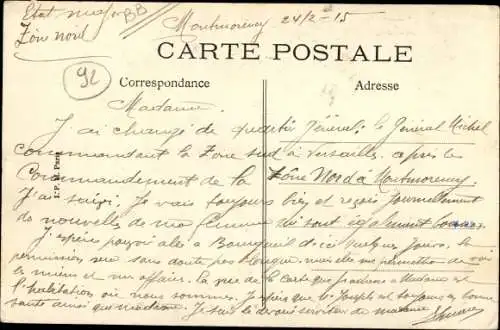 Etat major
Zone Nord
BB
Montmorency 24/2-15
CARTE POSTALE
92
Correspondance
Adresse
Madame.
J'ai changé de quartier Général; le Général Michel
commandant la Zone sud à Versailles. a pris le
Commandement de la Zone Nord à Montmorency.
J'ai suivi. Je vais toujours bien et reçois journellement
de nouvelles de ma femme qui sont également bonnes
J'espère pouvoir aller à Bourgueil d'ici quelques jours. La
permission sera sans doute pas longue. mais elle me permettra de voir
les miens et mes affaires. la vue de la carte que j'adresse à Madame est
l'habitation où nous sommes. J'espère que Mr Joseph est toujours en bonne
santé ainsi que madame. Je suis le dévoué serviteur de madame
P. H. Paris